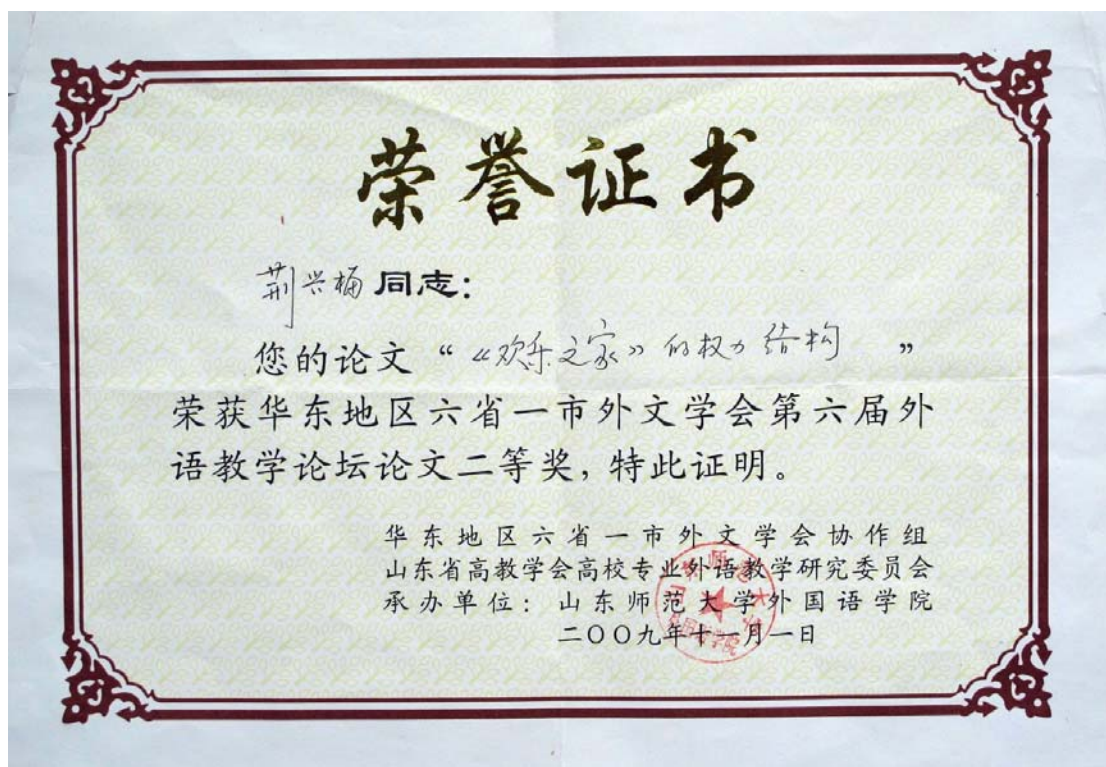 荣誉证书
荆兴梅同志：
您的论文“《欢乐之家》的权力结构”
荣获华东地区六省一市外文学会第六届外
语教学论坛论文二等奖，特此证明。
华东地区六省一市外文学会协作组
山东省高教学会高校专业外语教学研究委员会
承办单位：山东师范大学外国语学院
二〇〇九年十一月一日
山东师范大学
外国语学院